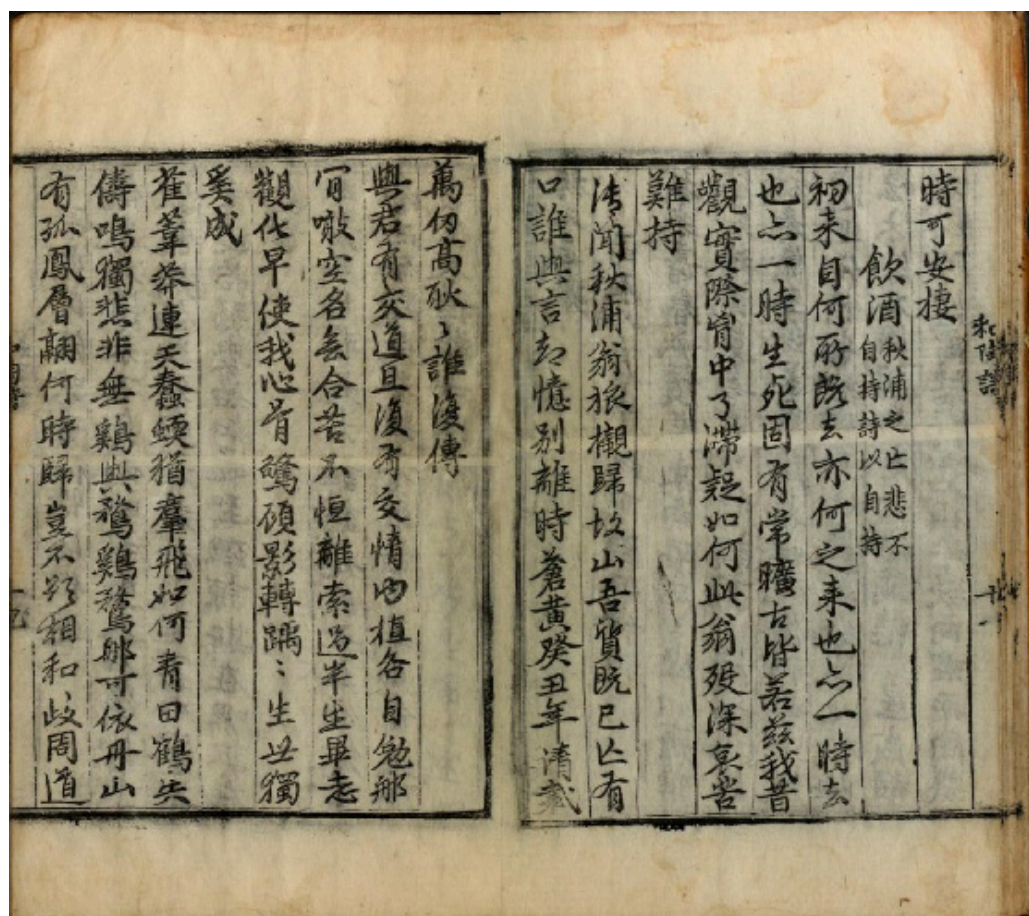 和陶詩
時可安棲
飲酒 秋浦之亡悲不
自持詩以自持
初来自何所既去亦何之来也亦一時去
也亦一時生死固有常曠古皆若茲我昔
觀實際胷中了滯疑如何此翁歿深哀苦
難持
闻秋浦翁旅櫬歸故山吾質既已亡有
口誰與言却憶别離時蒼黄癸丑年清
萬仞高耿〻誰復傳
與君有交道且復有交情物植各自勉那
肎啾空名無合苦不恒離索過半生畢志
觀化早使我心骨驚顧影轉踽〻生世獨
奚成
萑葦莽連天蠢蝡猶羣飛如何青田鶴失
儔鳴獨悲非無鷄與鶩鷄鶩那可依丹山
有孤鳳層翮何時歸豈不欲相和岐周道